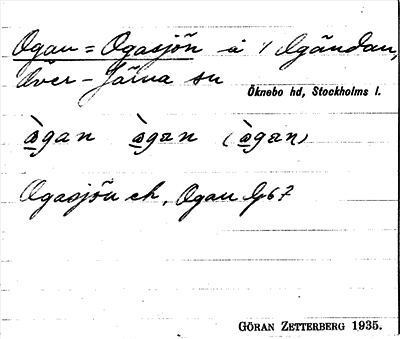 Ogan = Ogasjön å / Ogåndan,
Över-Järna sn
Öknebo hd, Stockholms l.
ògan ògan (ògan)
Ogasjön ek, Ogan Gj67
GÖRAN ZETTERBERG 1935.